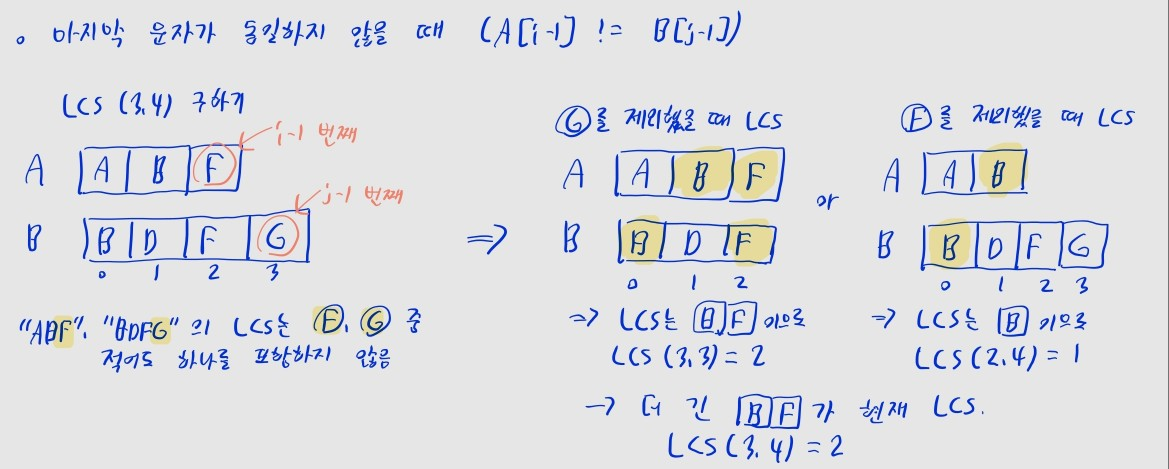 마지막 문자가 동일하지 않을 때 (A[i-1] != B[j-1])
LCS (3,4) 구하기
i-1 번째
A A B F
j-1 번째
B B D F G
0 1 2 3
"ABF", "BDFG" 의 LCS는 F, G 중
적어도 하나를 포함하지 않음
⇒
G를 제외했을 때 LCS
A A B F
B B D F
0 1 2
⇒ LCS는 B F 이므로
LCS (3,3) = 2
or
F를 제외했을 때 LCS
A A B
B B D F G
0 1 2 3
⇒ LCS는 B 이므로
LCS (2,4) = 1
→ 더 긴 B F 가 현재 LCS.
LCS (3,4) = 2